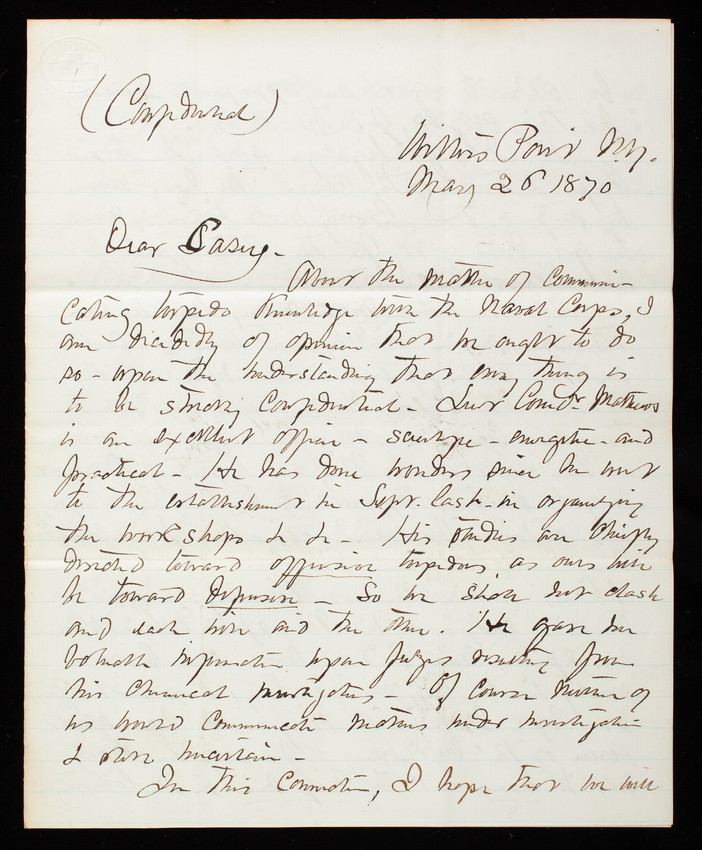 (Confidential)
Willets Point N.Y.
May 26 1870
Dear Casey -
About the matter of communi-
cating torpedo knowledge with the Naval Corps, I
am decidedly of opinion that we ought to do
so - upon the understanding that every thing is
to be strictly confidential - Lieut Comdr Mathews
is an excellent officer - scientific - energetic - and
practical - He has done wonders since he went
to the establishment in Sept. last - in organizing
the workshops &c &c - His studies are chiefly
directed toward offensive torpedoes, as ours will
be toward defensive - So we shall not clash
and each will aid the other. He gave me
valuable information upon fuzes resulting from
his chemical investigations - Of course neither of
us would communicate matters under investigation
& still uncertain -
In this connection, I hope that we will